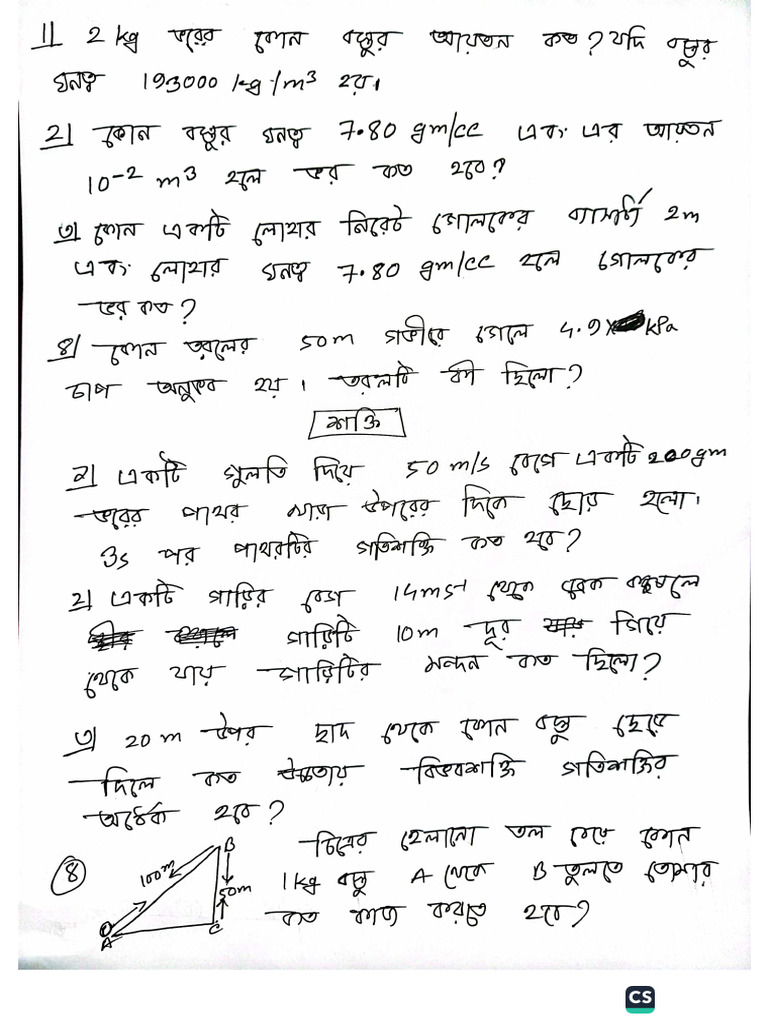 ১। 2 kg ভরের কোন বস্তুর আয়তন কত? যদি বস্তুর
ঘনত্ব 193000 kg/m³ হয়।
২। কোন বস্তুর ঘনত্ব 7.80 gm/cc এবং এর আয়তন
10⁻² m³ হলে ভর কত হবে?
৩। কোন একটি লোহার নিরেট গোলকের ব্যাসার্ধ 2m
এবং লোহার ঘনত্ব 7.80 gm/cc হলে গোলকের
ভর কত?
৪। কোন তরলের 50m গভীরে গেলে 4.9 kPa
চাপ অনুভব হয়। তরলটি কী ছিলো?
শক্তি
১। একটি গুলতি দিয়ে 50 m/s বেগে একটি 200gm
ভরের পাথর খাড়া উপরের দিকে ছোড়া হলো।
3s পর পাথরটির গতিশক্তি কত হবে?
২। একটি গাড়ির বেগ 14ms⁻¹ থেকে ব্রেক
গাড়িটি 10m দূর গিয়ে
থেকে যায় গাড়িটির মন্দন কত ছিলো?
৩। 20m উপর ছাদ থেকে কোন বস্তু ছেড়ে
দিলে কত উচ্চতায় বিভবশক্তি গতিশক্তির
অর্ধেক হবে?
৪ চিত্রের হেলানো তল বেয়ে কোন
1kg বস্তু A থেকে B তুলতে তোমার
কত কাজ করতে হবে?
B
100m
50m
A
C
CS